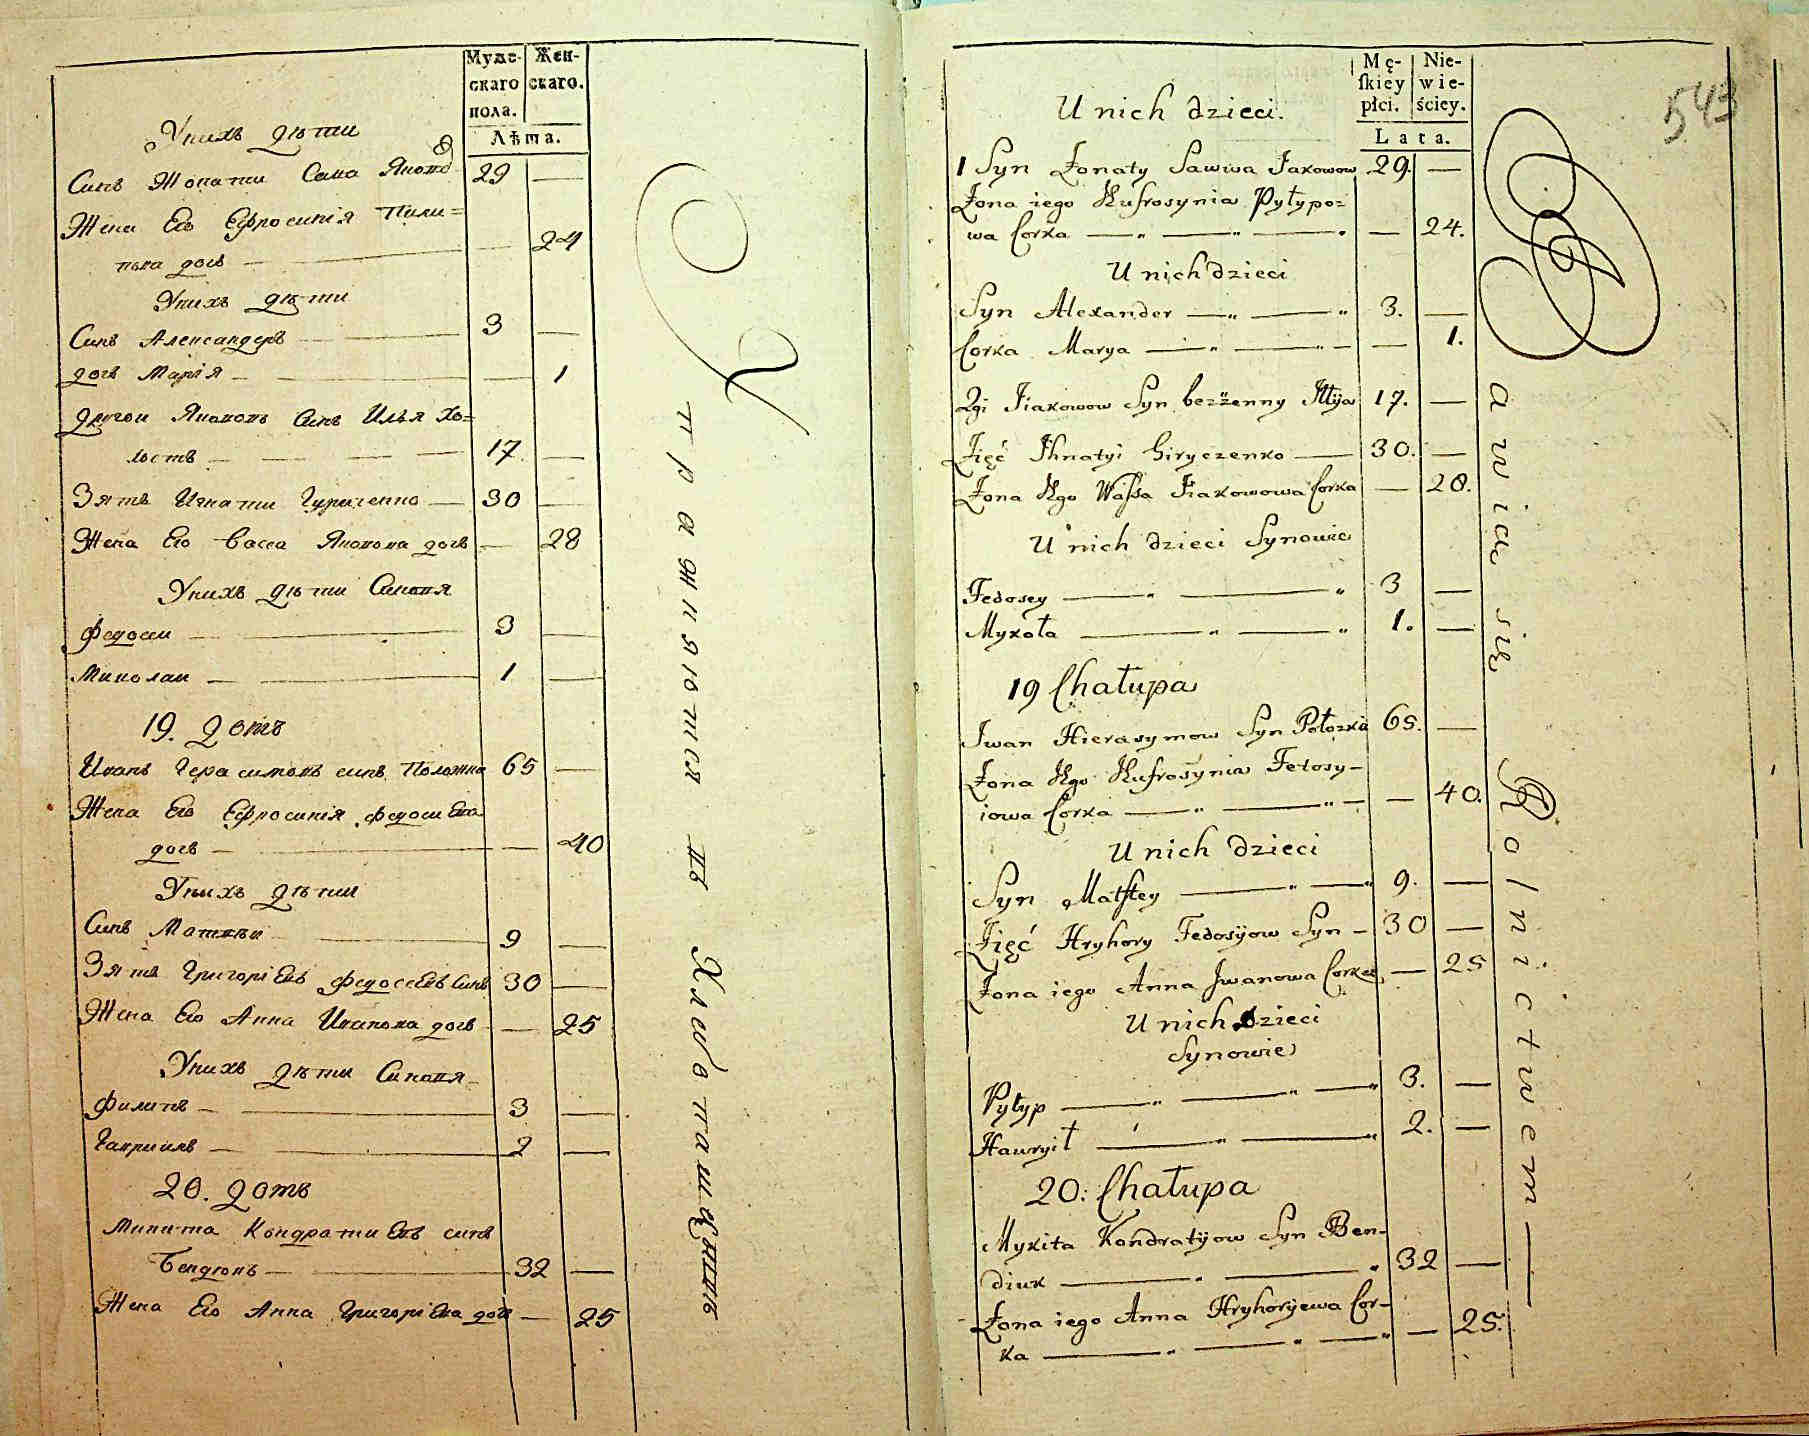 Мужескаго пола.
Женскаго.
Лѣта.
Унихъ дѣти
Синъ Жонати Сава Яковъ 29 —
Жена Его Ефросинія Пили=
пова дочь — — 24
Унихъ дѣти
Синъ Александеръ — 3 —
дочь Марія — — 1
другои Якововъ Синъ Илья хо=
лостъ — 17 —
Зять Игнати Гуриченко — 30 —
Жена Его Васса Яковова дочь — 28
Унихъ дѣти Синовя
Федоси — 3 —
Миколаи — 1 —
19. домъ
Иванъ Герасимовъ синъ Положко 65 —
Жена Его Ефросинія Федосиева
дочь — — 40
Унихъ дѣти
Синъ Матвѣи — 9 —
Зять Григоріевъ Федосеевъ Синъ 30 —
Жена Его Анна Иванова дочь — 25
Унихъ дѣти Синовя
Филипъ — 3 —
Гавриилъ — 2 —
20. домъ
Микита Кондратиевъ синъ
Бендюкъ — 32 —
Жена Его Анна Григоріева дочь — 25
упражняются въ Хлебопашъ
Męſkiey płci.
Niewieściey.
Lata.
543
U nich dzieci.
1 Syn Żonaty Sawwa Jakowow 29. —
Żona iego Eufrosynia Pyłypo=
wa Corka — „ — „ — „ — 24.
U nich dzieci
Syn Alexander — „ — „ 3. —
Corka Marya — „ — „ — 1.
2gi Jiakowow Syn bezżenny Illija 17. —
Zięć Ihnatyi Giryczenko — 30. —
Żona Jego Waſsa Jiakowowa Corka — 28.
U nich dzieci Synowie
Fedosey — „ — „ 3 —
Mykoła — „ — „ 1. —
19 Chałupa
Iwan Hierasymow Syn Połozka 65. —
Żona Jego Eufrosynia Fedosy-
iowa Corka — „ — „ — — 40.
U nich dzieci
Syn Matſtey — „ — „ 9. —
Zięć Hryhory Fedosyow Syn — 30 —
Żona iego Anna Iwanowa Corka — 25
U nich dzieci
Synowie
Pyłyp — „ — „ — „ 3. —
Hawryił — „ — „ 2. —
20: Chałupa
Mykita Kondratyow Syn Ben-
diuk — „ — „ 32 —
Żona iego Anna Hryhoryewa Cor-
ka — „ — „ — „ — 25.
Bawią się Rolnictwem —